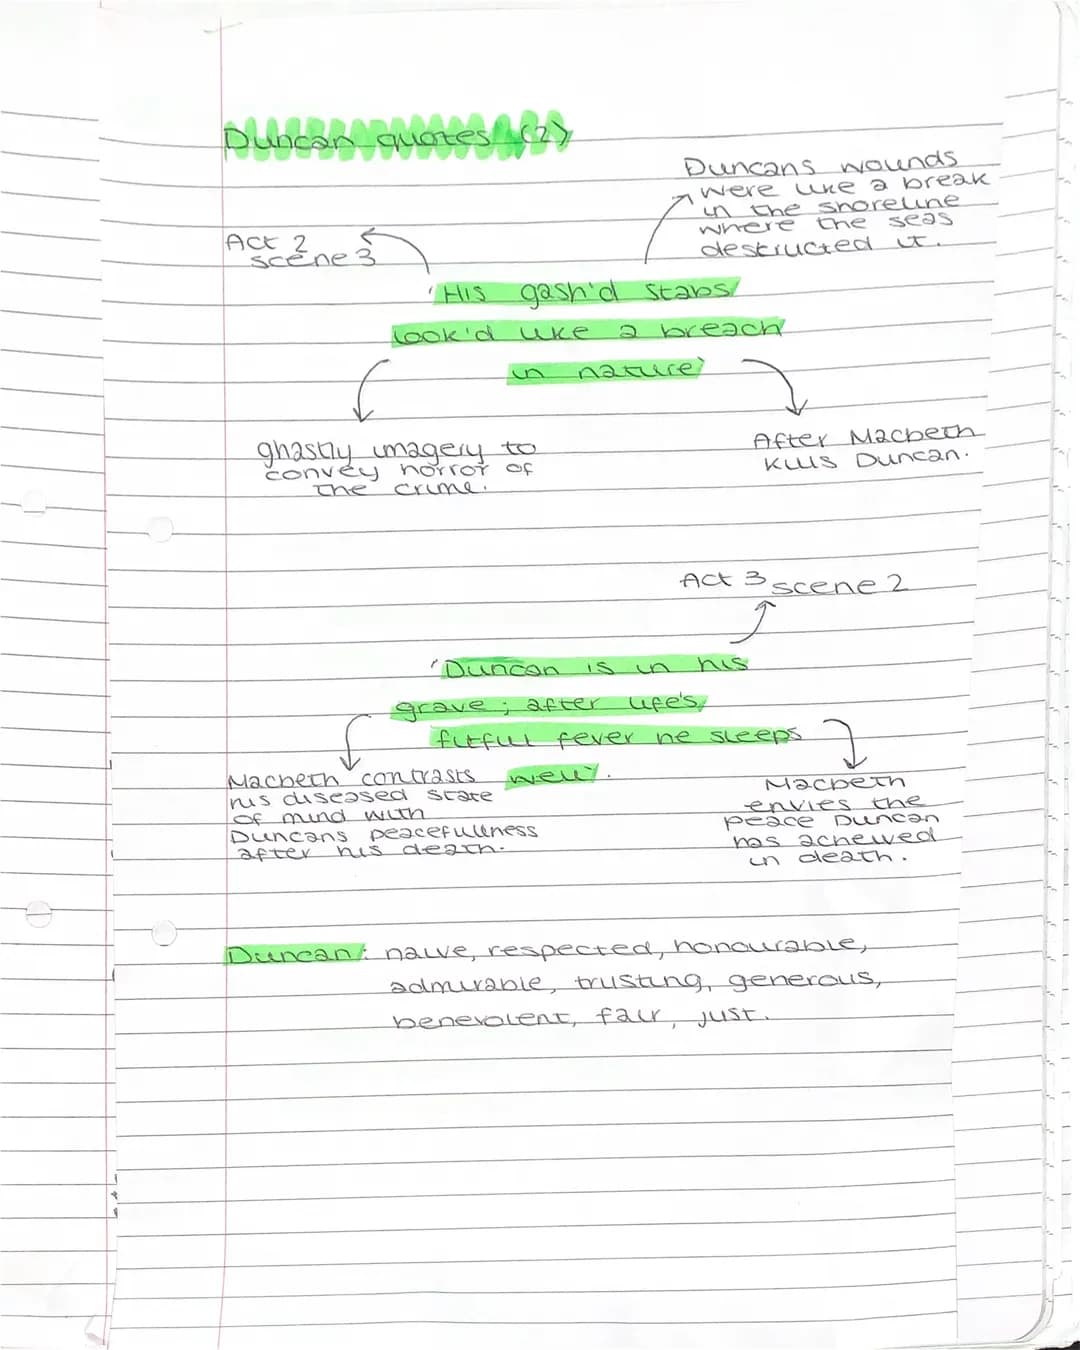 Duncan quotes (2)
Duncans wounds
were like a break
in the shoreline
where the seas
destructed it.
Act 2
scene 3
'His gash'd stabs
look'd like a breach
in nature'
ghastly imagery to
convey horror of
the crime.
After Macbeth
kills Duncan.
Act 3 scene 2
'Duncan is in his
grave; after life's
fitful fever he sleeps
well'.
Macbeth contrasts
his diseased state
of mind with
Duncans peacefullness
after his death.
Macbeth
envies the
peace Duncan
has acheived
in death.
Duncan: naive, respected, honourable,
admirable, trusting, generous,
benevolent, fair, just.